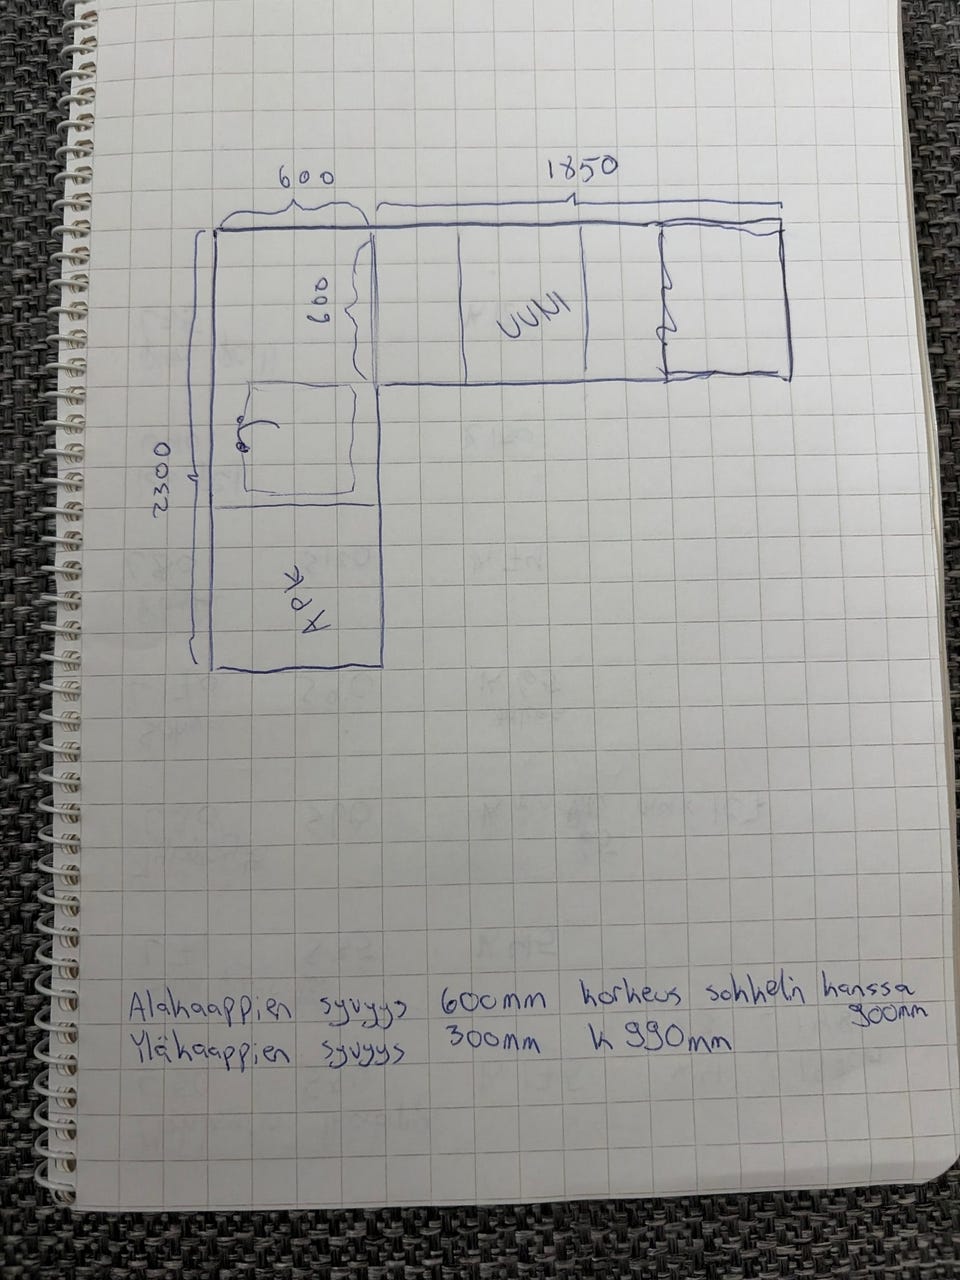 600
1850
600
UUNI
2300
APK
Alakaappien syvyys 600mm korkeus sokkelin kanssa
900mm
Yläkaappien syvyys 300mm k 990mm